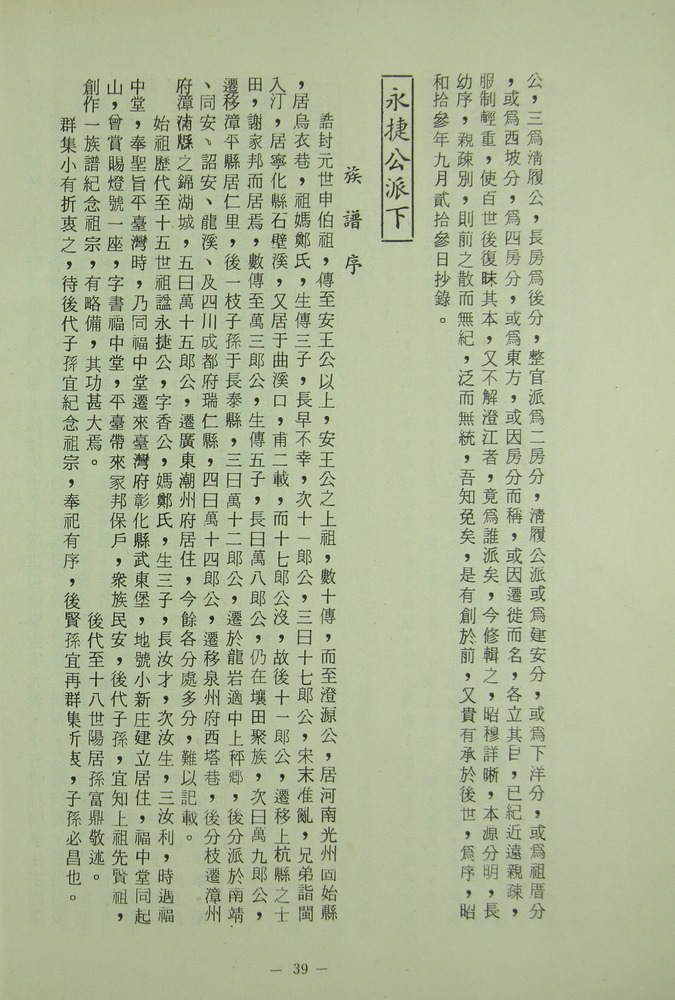 公，三爲清履公，長房爲後分，整官派爲二房分，清履公派或爲建安分，或爲下洋分，或爲祖厝分
，或爲西坡分，爲四房分，或爲東方，或因房分而稱，或因遷徙而名，各立其目，已紀近遠親疎，
服制輕重，使百世後復昧其本，又不解澄江者，竟爲誰派矣，今修輯之，昭穆詳晰，本源分明，長
幼序，親疎別，則前之散而無紀，泛而無統，吾知免矣，是有創於前，又貴有承於後世，爲序，昭
和拾參年九月貳拾參日抄錄。
永捷公派下
族譜序
誥封元世申伯祖，傳至安王公以上，安王公之上祖，數十傳，而至澄源公，居河南光州固始縣
，居烏衣巷，祖媽鄭氏，生傳三子，長早不幸，次十一郎公，三曰十七郎公，宋末准亂，兄弟詣閩
入汀，居寧化縣石壁溪，又居于曲溪口，甫二載，而十七郎公沒，故後十一郎公，遷移上杭縣之士
田，謝家邦而居焉，數傳至萬三郎公，生傳五子，長曰萬八郎公，仍在壤田聚族，次曰萬九郎公，
遷移漳平縣居仁里，後一枝子孫于長泰縣，三曰萬十二郎公，遷於龍岩適中上秤鄉，後分派於南靖
、同安、詔安、龍溪、及四川成都府瑞仁縣，四曰萬十四郎公，遷移泉州府西塔巷，後分枝遷漳州
府漳浦縣之錦湖城，五曰萬十五郎公，遷廣東潮州府居住，今餘各分處多分，難以記載。
始祖歷代至十五世祖諡永捷公，字香公，媽鄭氏，生三子，長汝才，次汝生，三汝利，時遇福
中堂，奉聖旨平臺灣時，乃同福中堂遷來臺灣府彰化縣武東堡，地號小新庄建立居住，福中堂同起
山，曾賞賜燈號一座，字書福中堂，平臺帶來家邦保戶，衆族民安，後代子孫，宜知上祖先賢祖，
創作一族譜紀念祖宗，有略備，其功甚大焉。　　後代至十八世陽居孫富鼎敬述。
群集小有折衷之，待後代子孫宜紀念祖宗，奉祀有序，後賢孫宜再群集折衷，子孫必昌也。
— 39 —